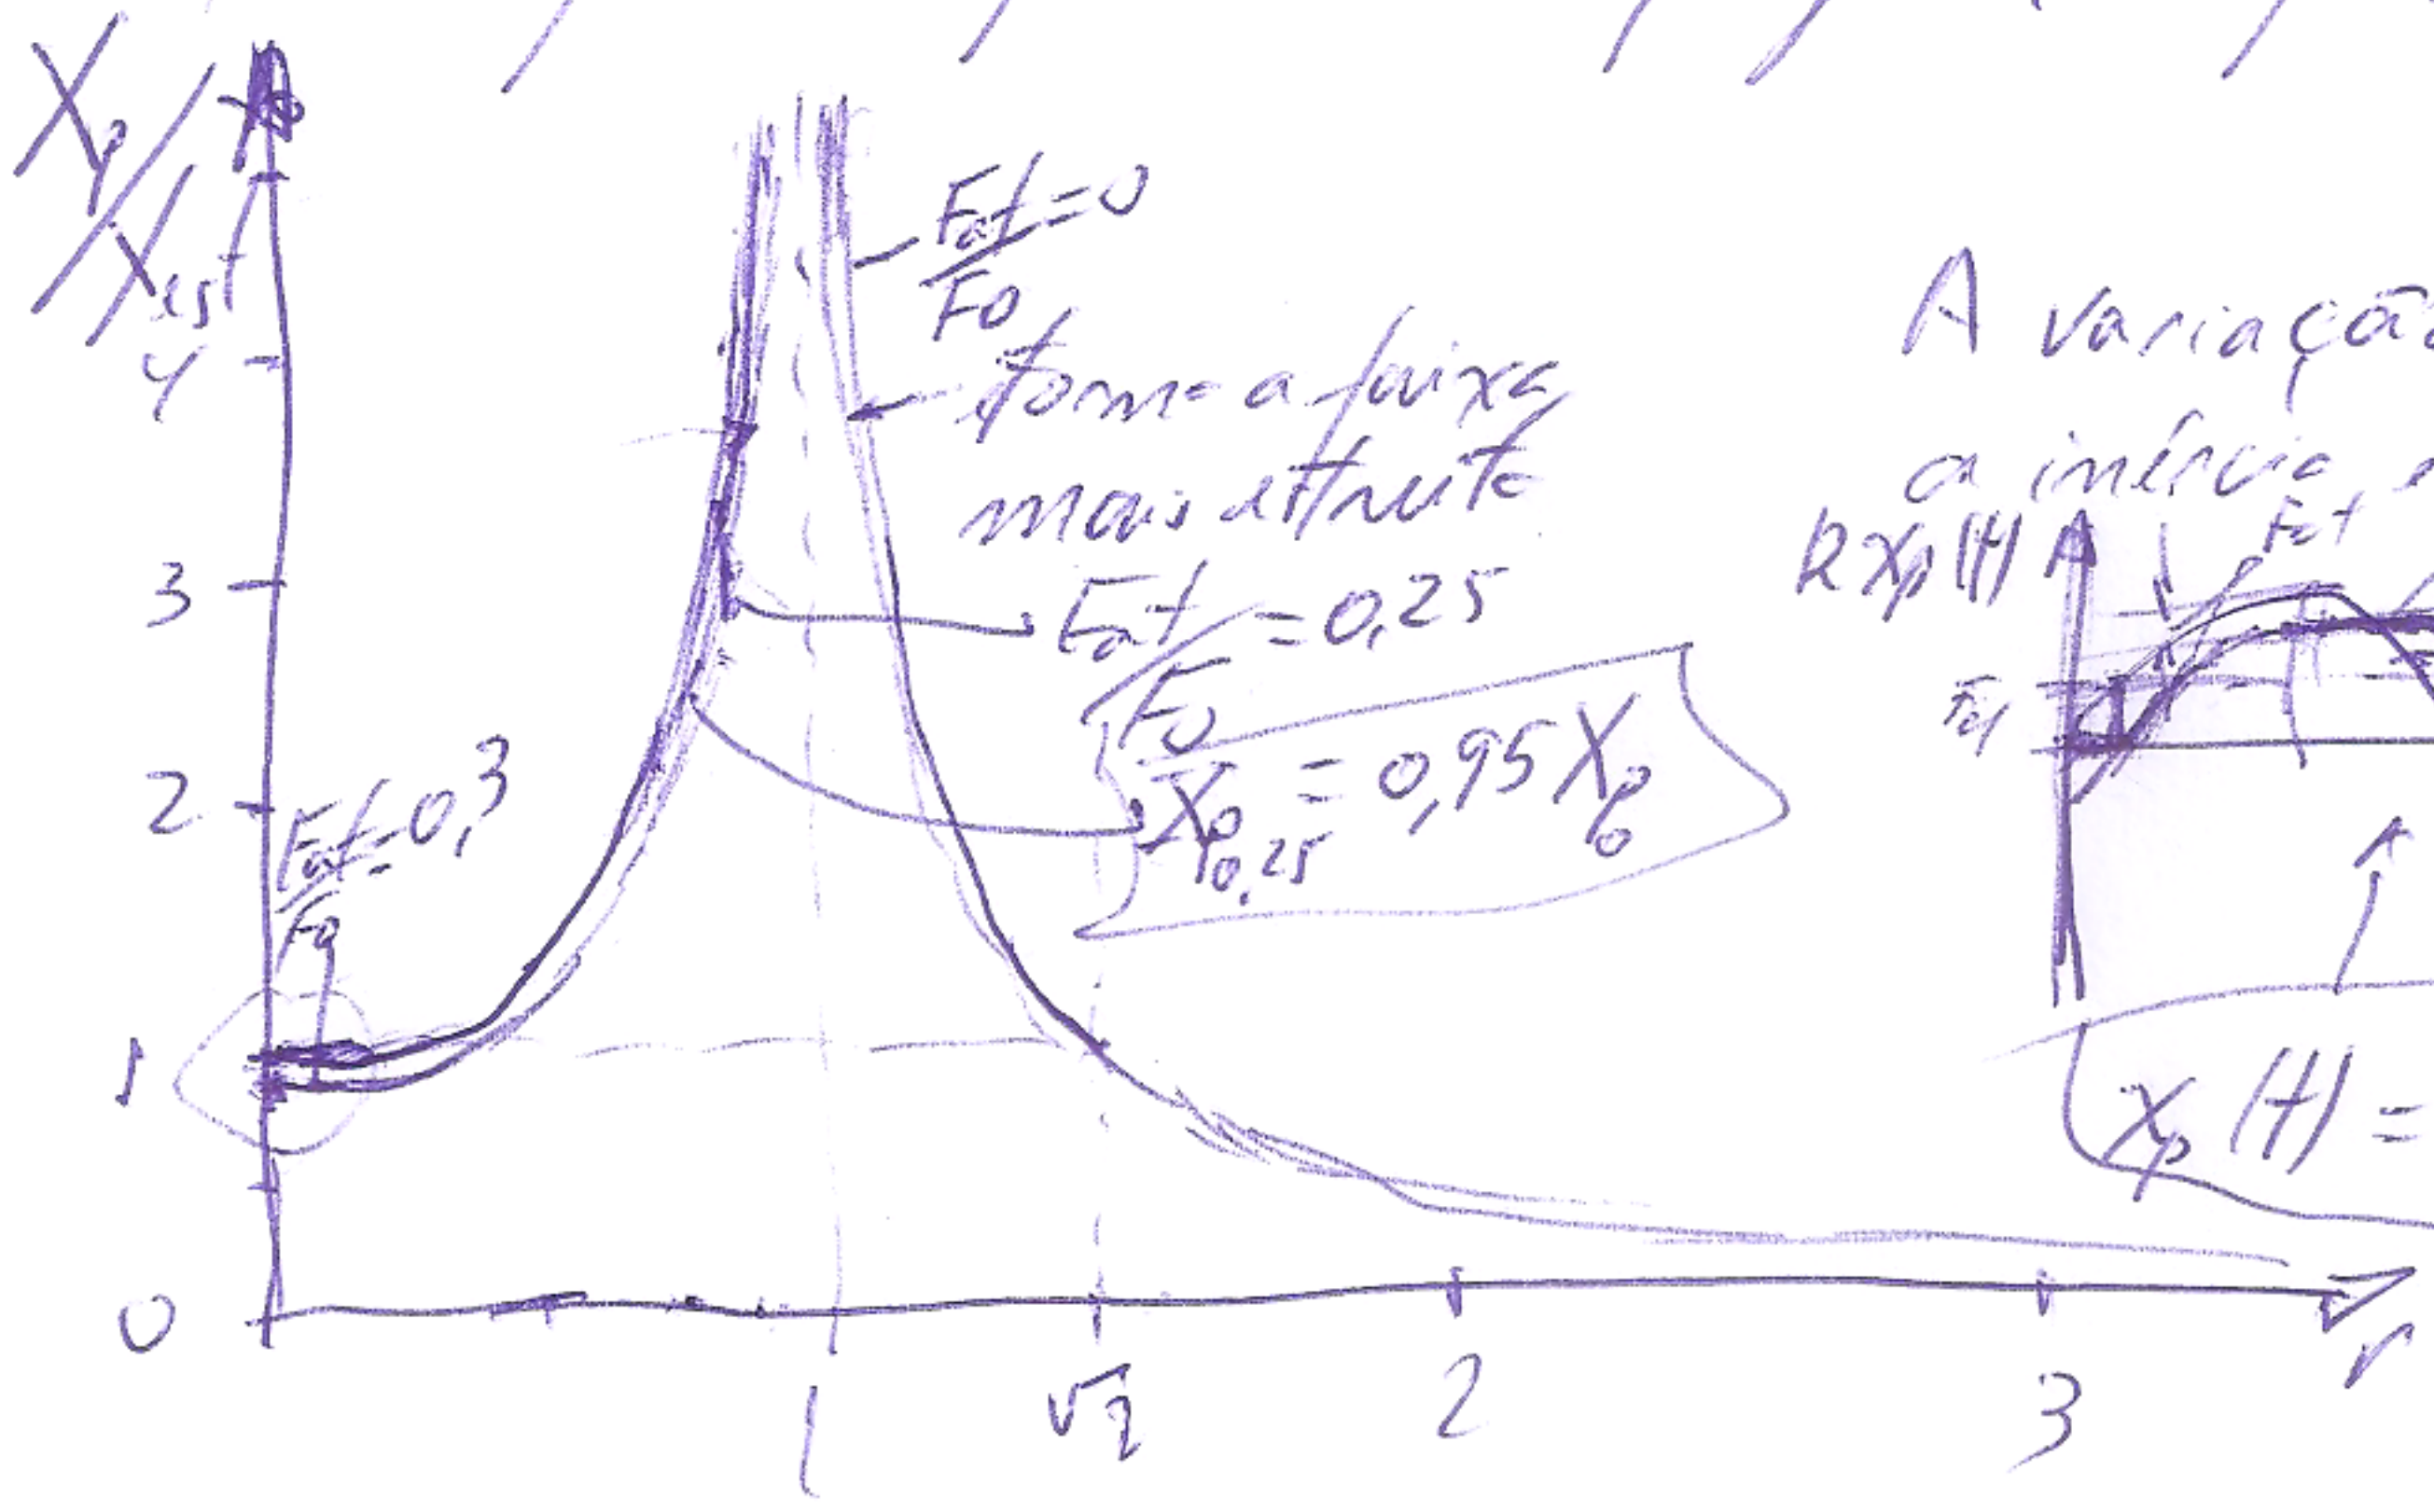 Xp/Xest
Fat/F0 = 0
torna a faixa
mais estreita
4
3
2
1
0
Fat/F0 = 0,25
Xp0,25 = 0,95 Xp0
Fat/F0 = 0,3
1
√2
2
3
r
A variaçã
a inércia e
k xp(t)
Fat
Fat
xp(t) =